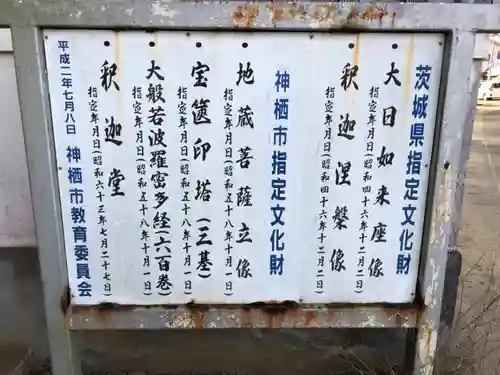 茨城県指定文化財
・大日如来座像
指定年月日(昭和四十六年十二月二日)
・釈迦涅槃像
指定年月日(昭和四十六年十二月二日)
神栖市指定文化財
・地蔵菩薩立像
指定年月日(昭和五十八年十月一日)
・宝篋印塔(三基)
指定年月日(昭和五十八年十月一日)
・大般若波羅密多経(六百巻)
指定年月日(昭和五十八年十月一日)
・釈迦堂
指定年月日(昭和六十三年七月二十七日)
平成二年七月八日 神栖市教育委員会